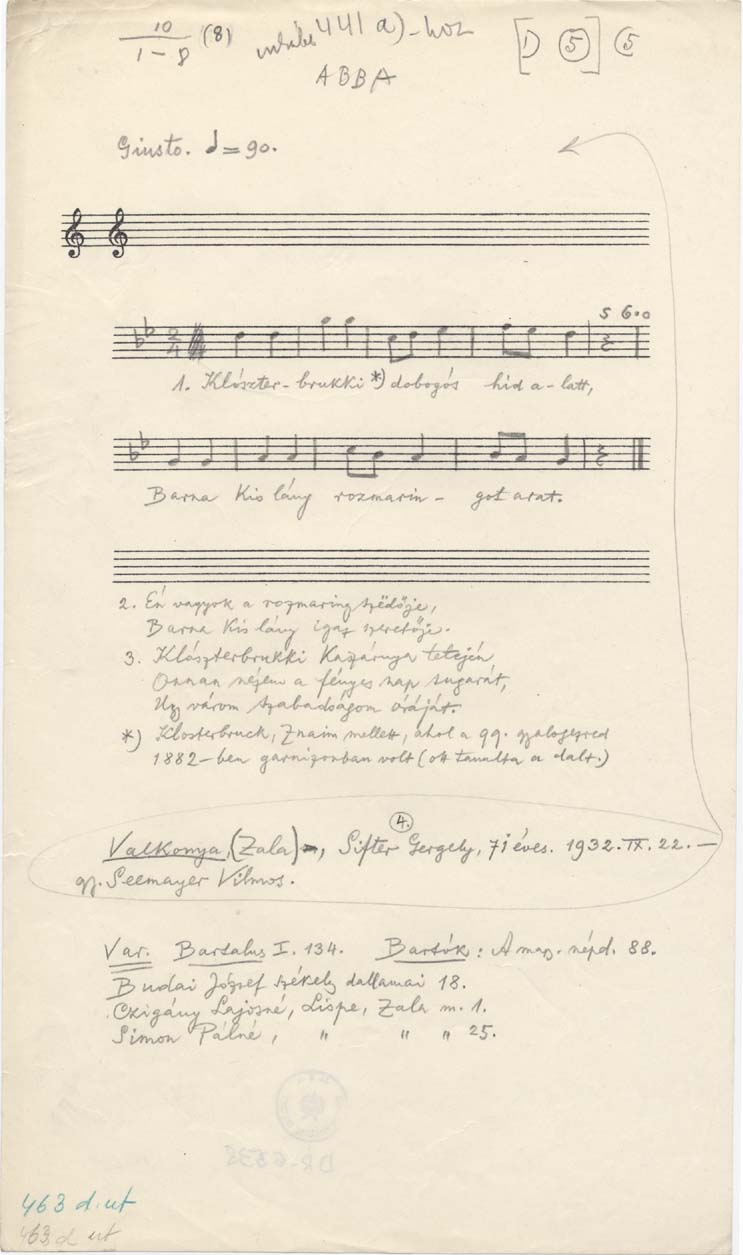 10
1 – 8 (8) 441 a) – hoz [1) 5] 5
ABBA
Giusto. ♩ = 90.
2
4
5 6.0
1. Klószter – brukki *) dobogós hid a – latt,
Barna kis lány rozmarin – got arat.
2. Én vagyok a rozmaring szëdője,
Barna kis lány igaz szeretője.
3. Klószterbrukki kaszárnya tetején
Onnan nézem a fényes nap sugarát,
Ugy várom szabadságom óráját.
*) Klosterbruck, Znaim mellett, ahol a 99. gyalogezred
1882–ben garnizonban volt (ott tanulta a dalt.)
4.
Valkonya, (Zala), Sifter Gergely, 71 éves. 1932. IX. 22. –
gy. Seemayer Vilmos.
Var. Bartalus I. 134. Bartók: A mag. népd. 88.
Budai József székely dallamai 18.
Czigány Lajosné, Lispe, Zala m. 1.
Simon Pálné, " " " 25.
463 d. ut
463 d ut